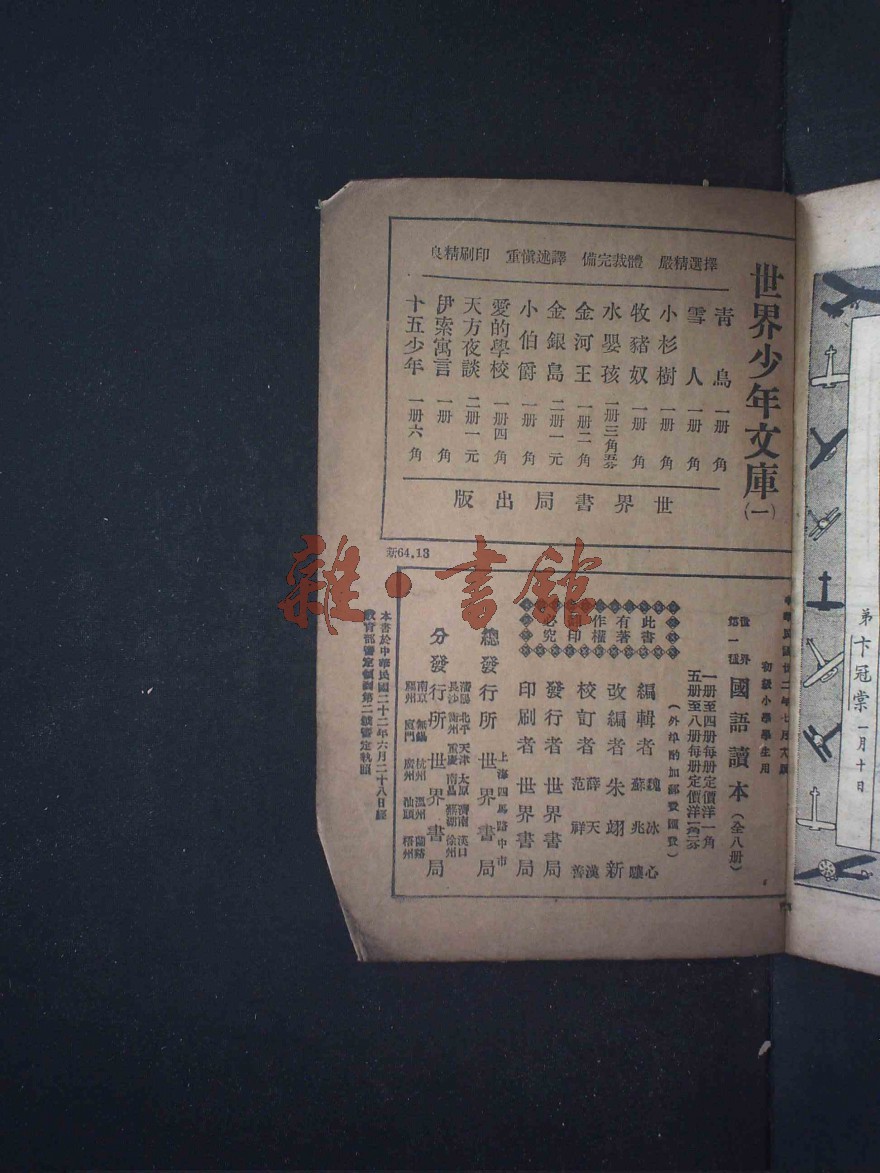 世界少年文庫(一)
擇選精嚴　體裁完備　譯述愼重　印刷精良
青鳥　一册　角
雪人　一册　角
小杉樹　一册　角
牧豬奴　一册　角
水嬰孩　一册三角
金河王　一册二角
金銀島　二册一元
小伯爵　一册　角
愛的學校　一册四角
天方夜談　二册一元
伊索寓言　一册　角
十五少年　一册六角
世界書局出版
新64.13
初級小學學生用
世界第一種 國語讀本(全八册)
一册至四册每册定價洋一角
五册至八册每册定價洋一角二分
(外埠酌加郵費匯費)
此書有著作權翻印必究
編輯者 魏冰心 蘇兆驤
改編者 朱翊新
校訂者 薛天漢 范祥善
發行者 世界書局
印刷者 世界書局
總發行所 上海四馬路中市 世界書局
瀋陽 北平 天津 太原 濟南 漢口
長沙 衡州 重慶 南昌 蕪湖 徐州
分發行所 世界書局
南京 無錫 杭州 溫州 蘭谿
廈門 廣州 汕頭 梧州
本書於中華民國二十二年六月二十八日經
教育部審定領到第二號審定執照
第
卞冠棠
一月十日
雜·書館